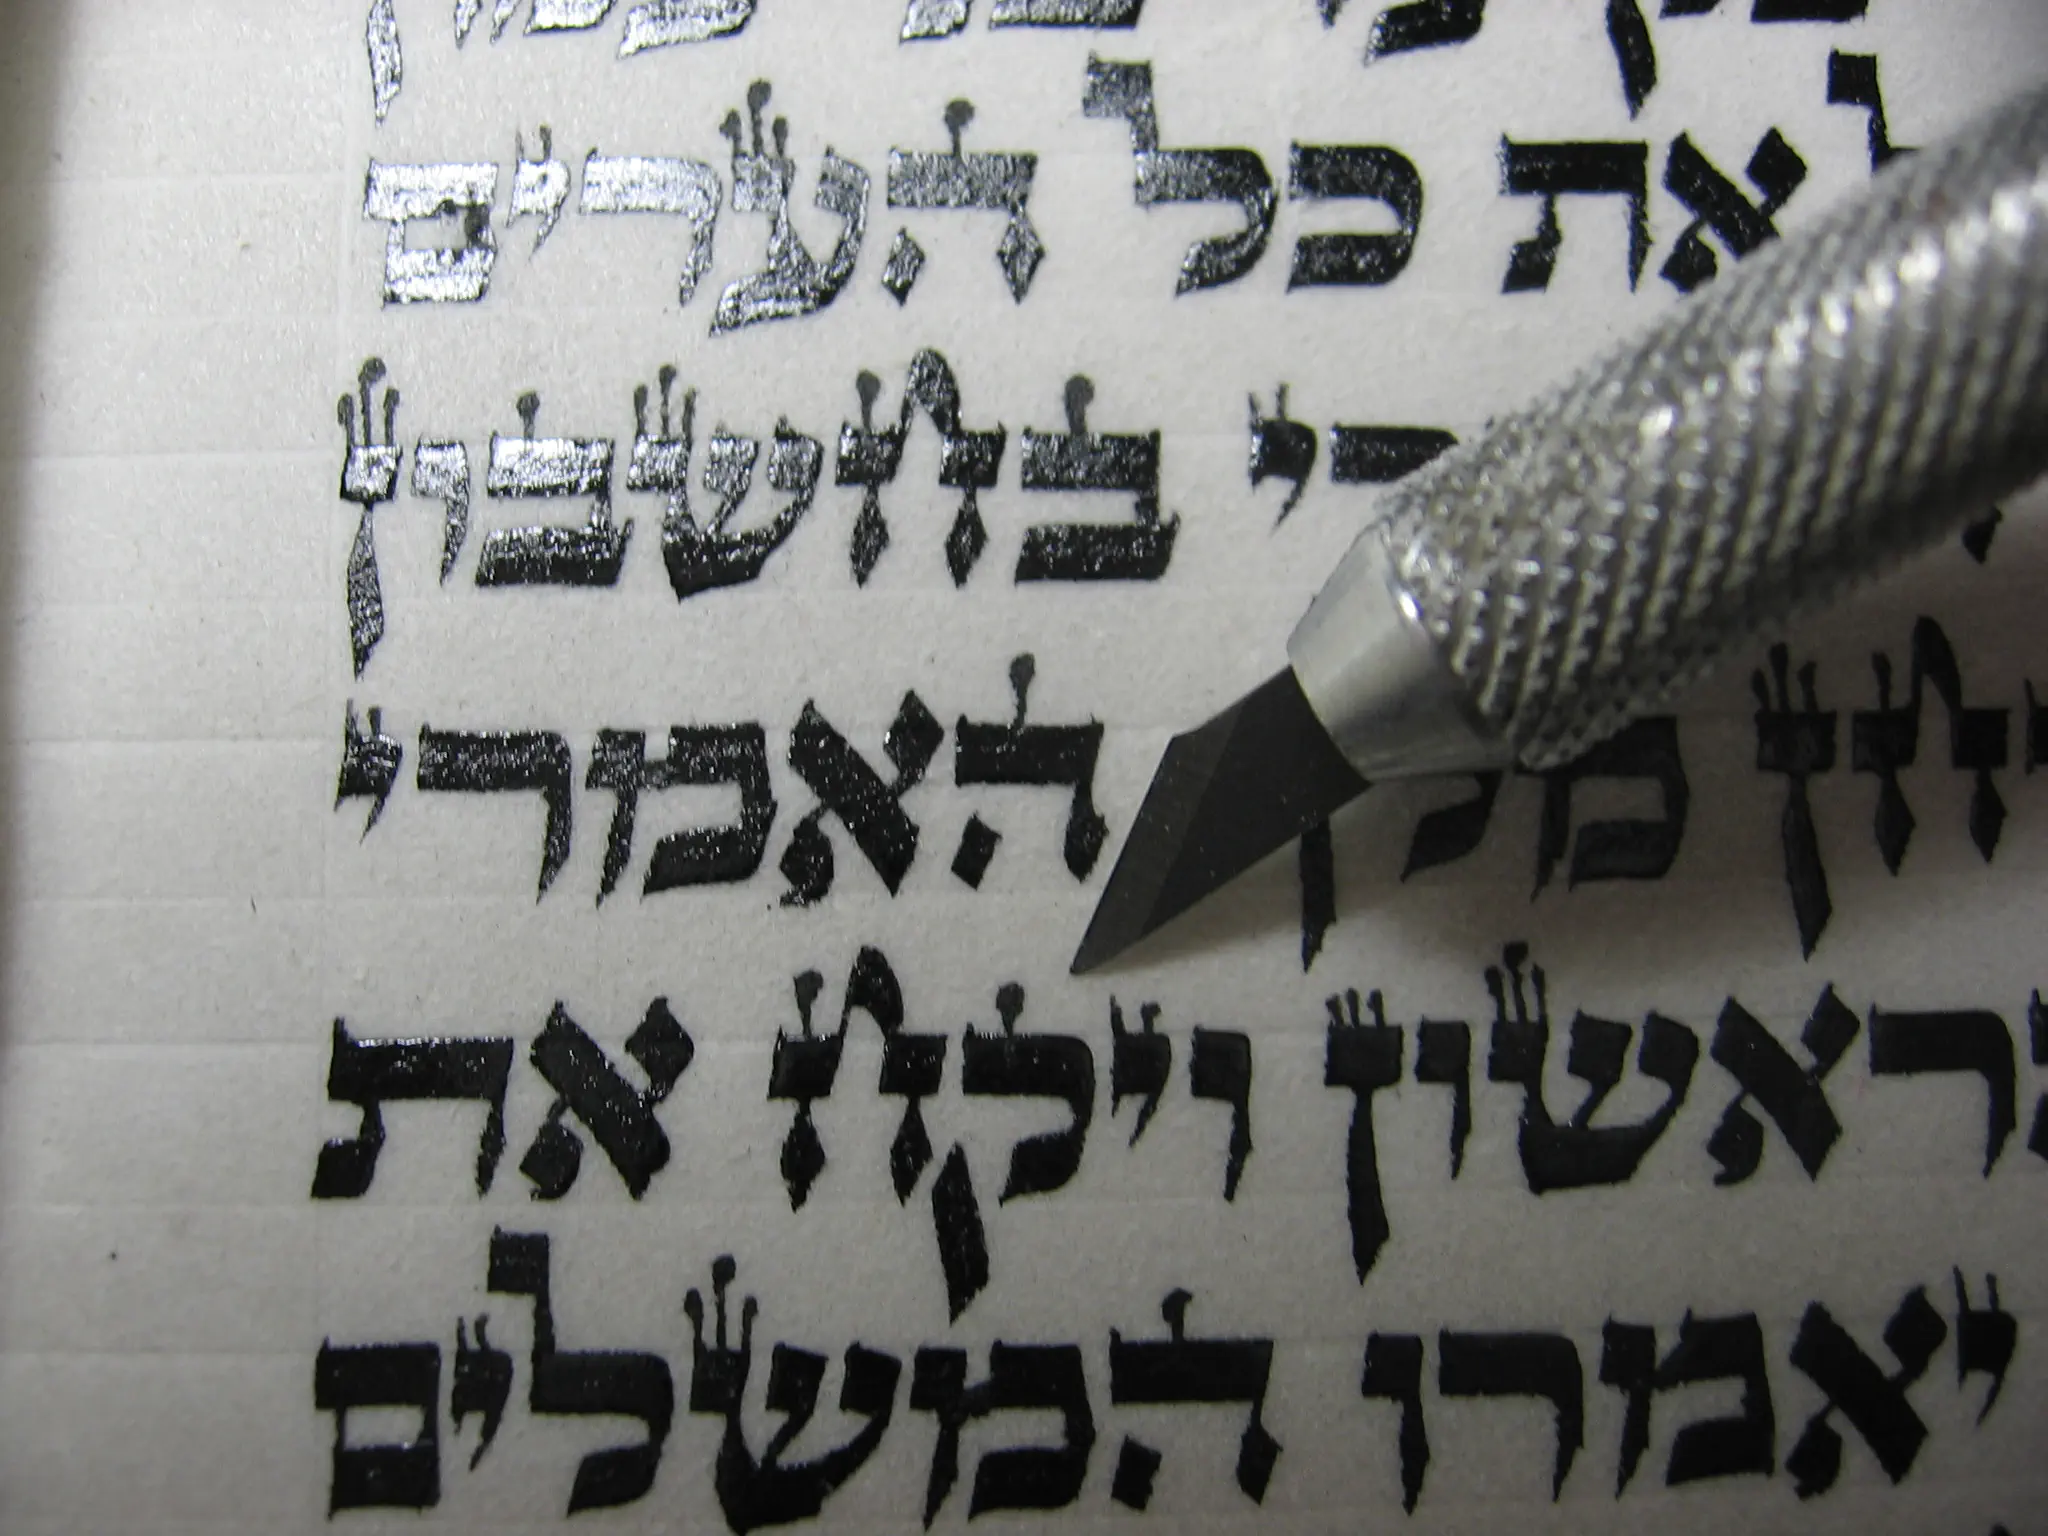 את כל הערים
רי בחשבון
יחן מלך האמרי
ראשון ויקח את
יאמרו המשלים